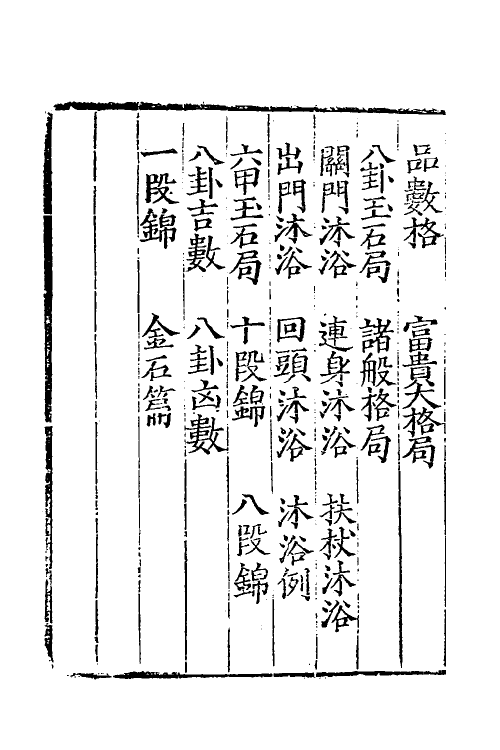 品數格　富貴大格局
八卦玉石局　諸般格局
關門沐浴　連身沐浴　扶杖沐浴
出門沐浴　回頭沐浴　沐浴例
六甲玉石局　十段錦　八段錦
八卦吉數　八卦凶數
一段錦　金石篇